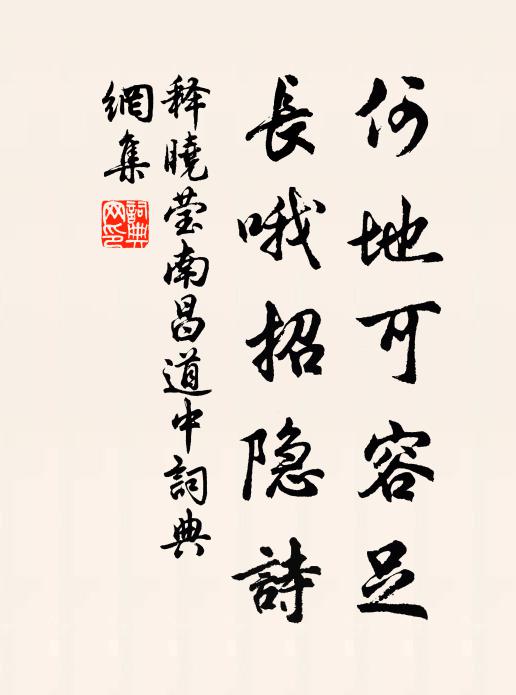 何地可容足
長哦招隐詩
释曉莹南昌道中詞典
網集
詞典
网印